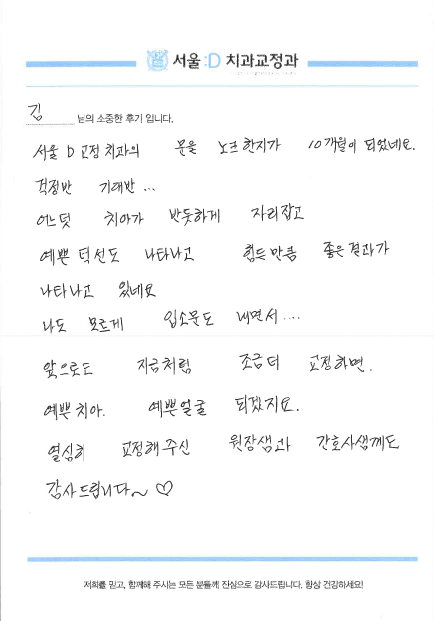 서울:D 치과교정과
김
님의 소중한 후기 입니다.
서울 D 교정 치과의 문을 노크한지가 10개월이 되었네요.
걱정반 기대반 ...
어느덧 치아가 반듯하게 자리잡고
예쁜 턱선도 나타나고 힘든만큼 좋은결과가
나타나고 있네요
나도 모르게 입소문도 내면서....
앞으로도 지금처럼 조금더 교정하면.
예쁜치아. 예쁜얼굴 되겠지요.
열심히 교정해주신 원장샘과 간호사샘께도
감사드립니다~ ♡
저희를 믿고, 함께해 주시는 모든 분들께 진심으로 감사드립니다. 항상 건강하세요!